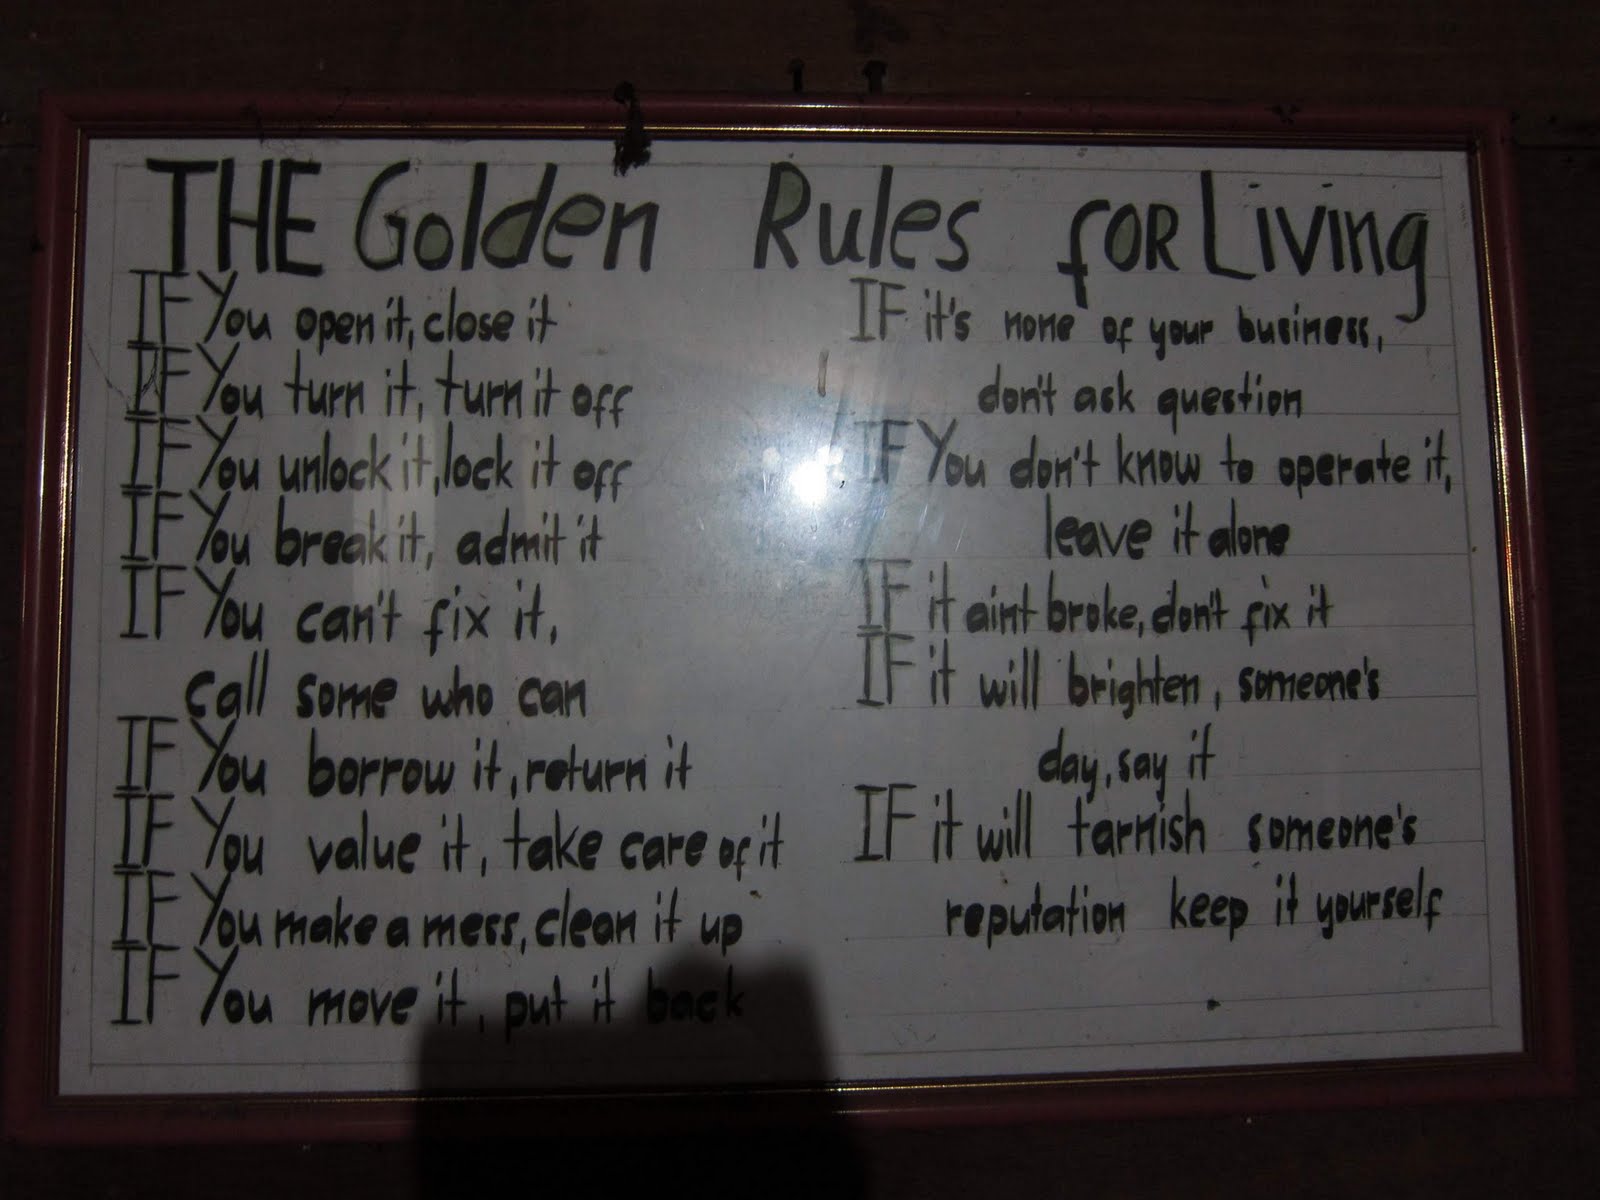 THE Golden Rules for Living
IF You open it, close it
IF You turn it, turn it off
IF You unlock it, lock it off
IF You break it, admit it
IF You can't fix it,
call some who can
IF You borrow it, return it
IF You value it, take care of it
IF You make a mess, clean it up
IF You move it, put it back
IF it's none of your business,
don't ask question
IF You don't know to operate it,
leave it alone
IF it aint broke, don't fix it
IF it will brighten, someone's
day, say it
IF it will tarnish someone's
reputation keep it yourself